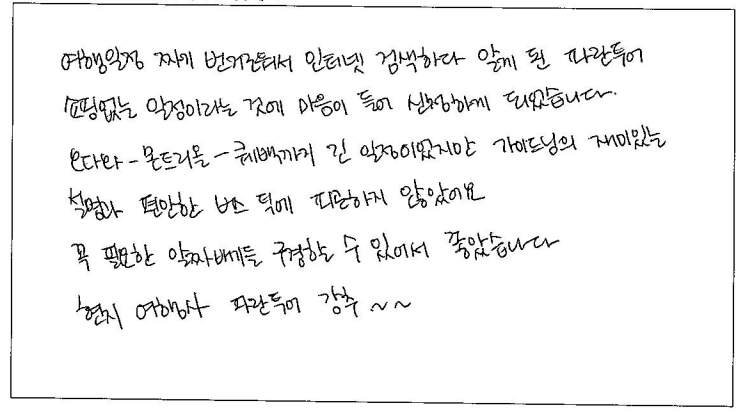 여행일정 짜기 번거로워서 인터넷 검색하다 알게 된 파란투어
쇼핑없는 일정이라는 것에 마음이 들어 신청하게 되었습니다.
오타와 - 몬트리올 - 퀘벡까지 긴 일정이었지만 가이드님의 재미있는
설명과 편안한 버스 덕에 피곤하지 않았어요
꼭 필요한 알짜배기들 구경할 수 있어서 좋았습니다
현지 여행사 파란투어 강추 ~~